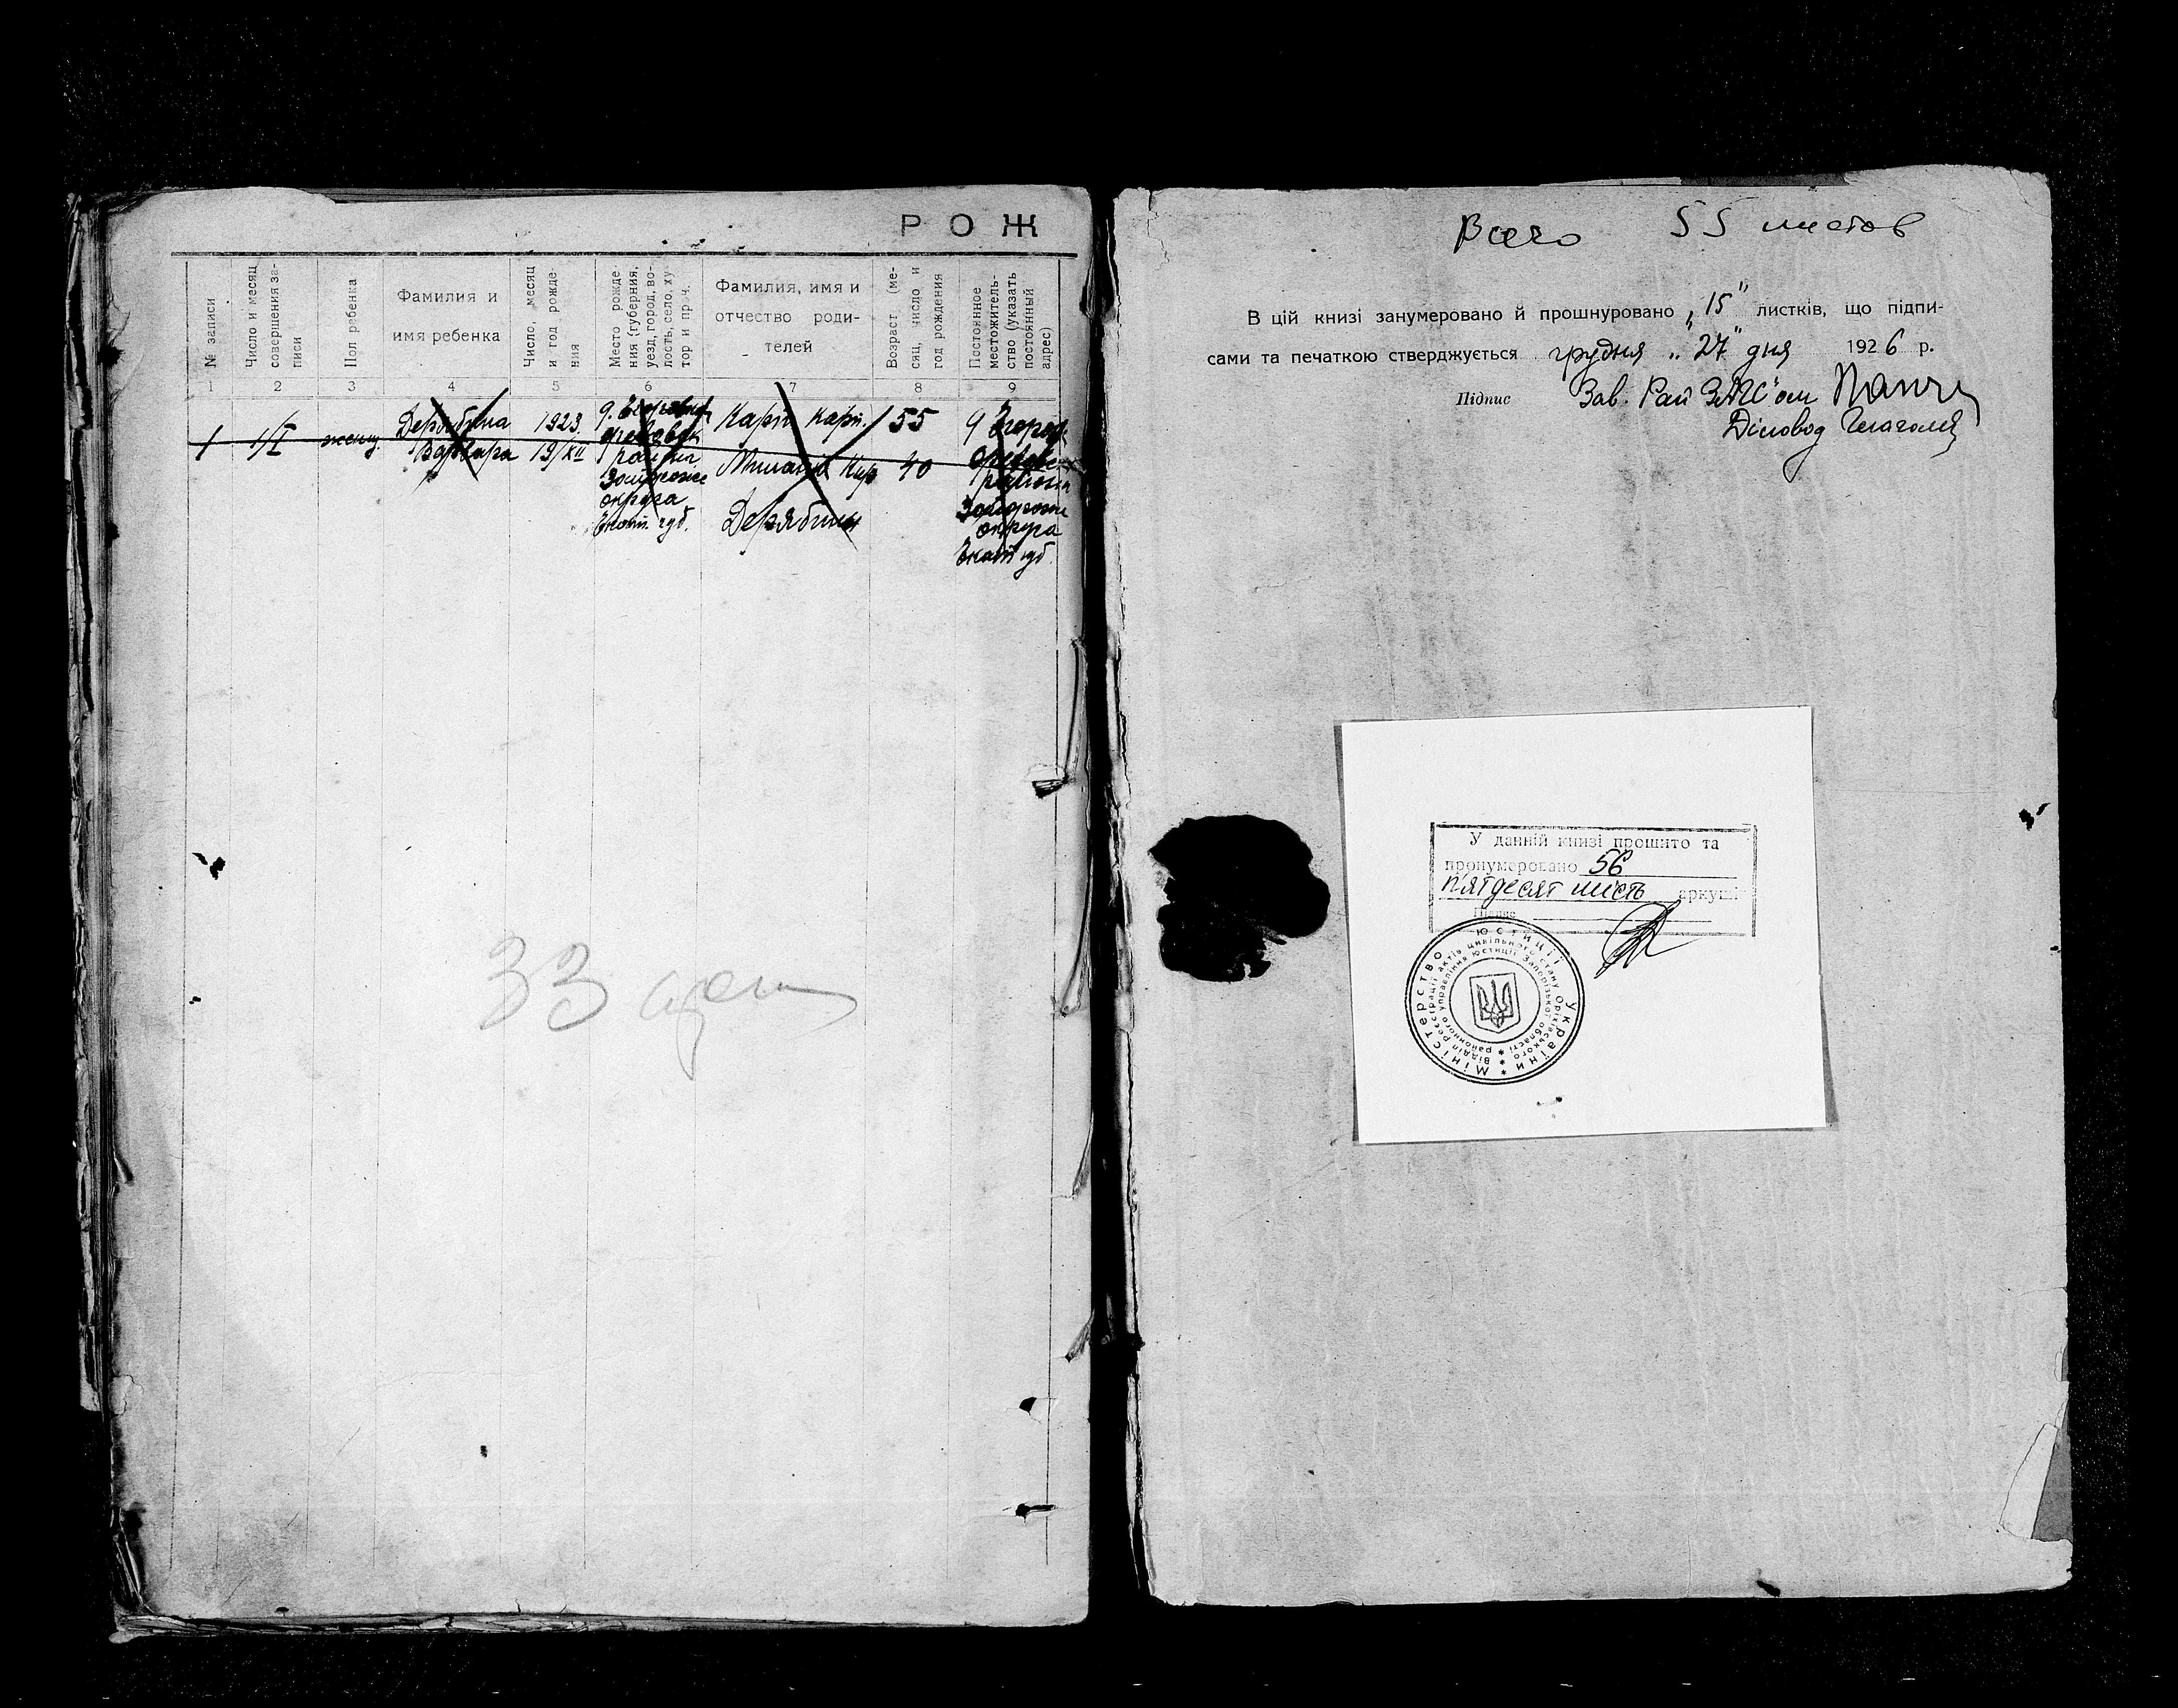 Р О Ж
№ записи
Число и месяц совершения за-
писи
Пол ребенка
Фамилия и
имя ребенка
Число, месяц
и год рожде-
ния
Место рожде
ния (губерния,
уезд, город, во-
лость, село, ху
тор и проч.
Фамилия, имя и
отчество роди-
телей
Возраст (ме-
сяц, число и
год рождения
Постоянное
местожитель-
ство (указать
постоянный
адрес)
1 2 3 4 5 6 7 8 9
1 1/I женщ.
Дерябина
Варвара
1923.
19/XII
района
округа
Екат. губ.
Карп Карп.
Дерябины
55
40
района
округа
Екат губ.
33
Всего 55 листов
В цій книзі занумеровано й прошнуровано „15" листків, що підпи-
сами та печаткою стверджується грудня „27" дня 1926 р.
Підпис Зав. Рай ЗАГС'ом
Діловод
У данній книзі прошито та
пронумеровано 56
п'ятдесят шість аркуші
Підпис
Міністерство юстиції України
Відділ реєстрації актів цивільного стану Оріхівського
районного управління юстиції Запорізької області